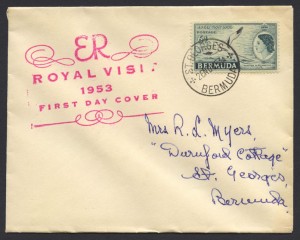 ER
ROYAL VISIT
1953
FIRST DAY COVER
ST. GEORGES
BERMUDA
BERMUDA
Mrs R. L. Myers,
"Durnford Cottage"
St. Georges,
Bermuda